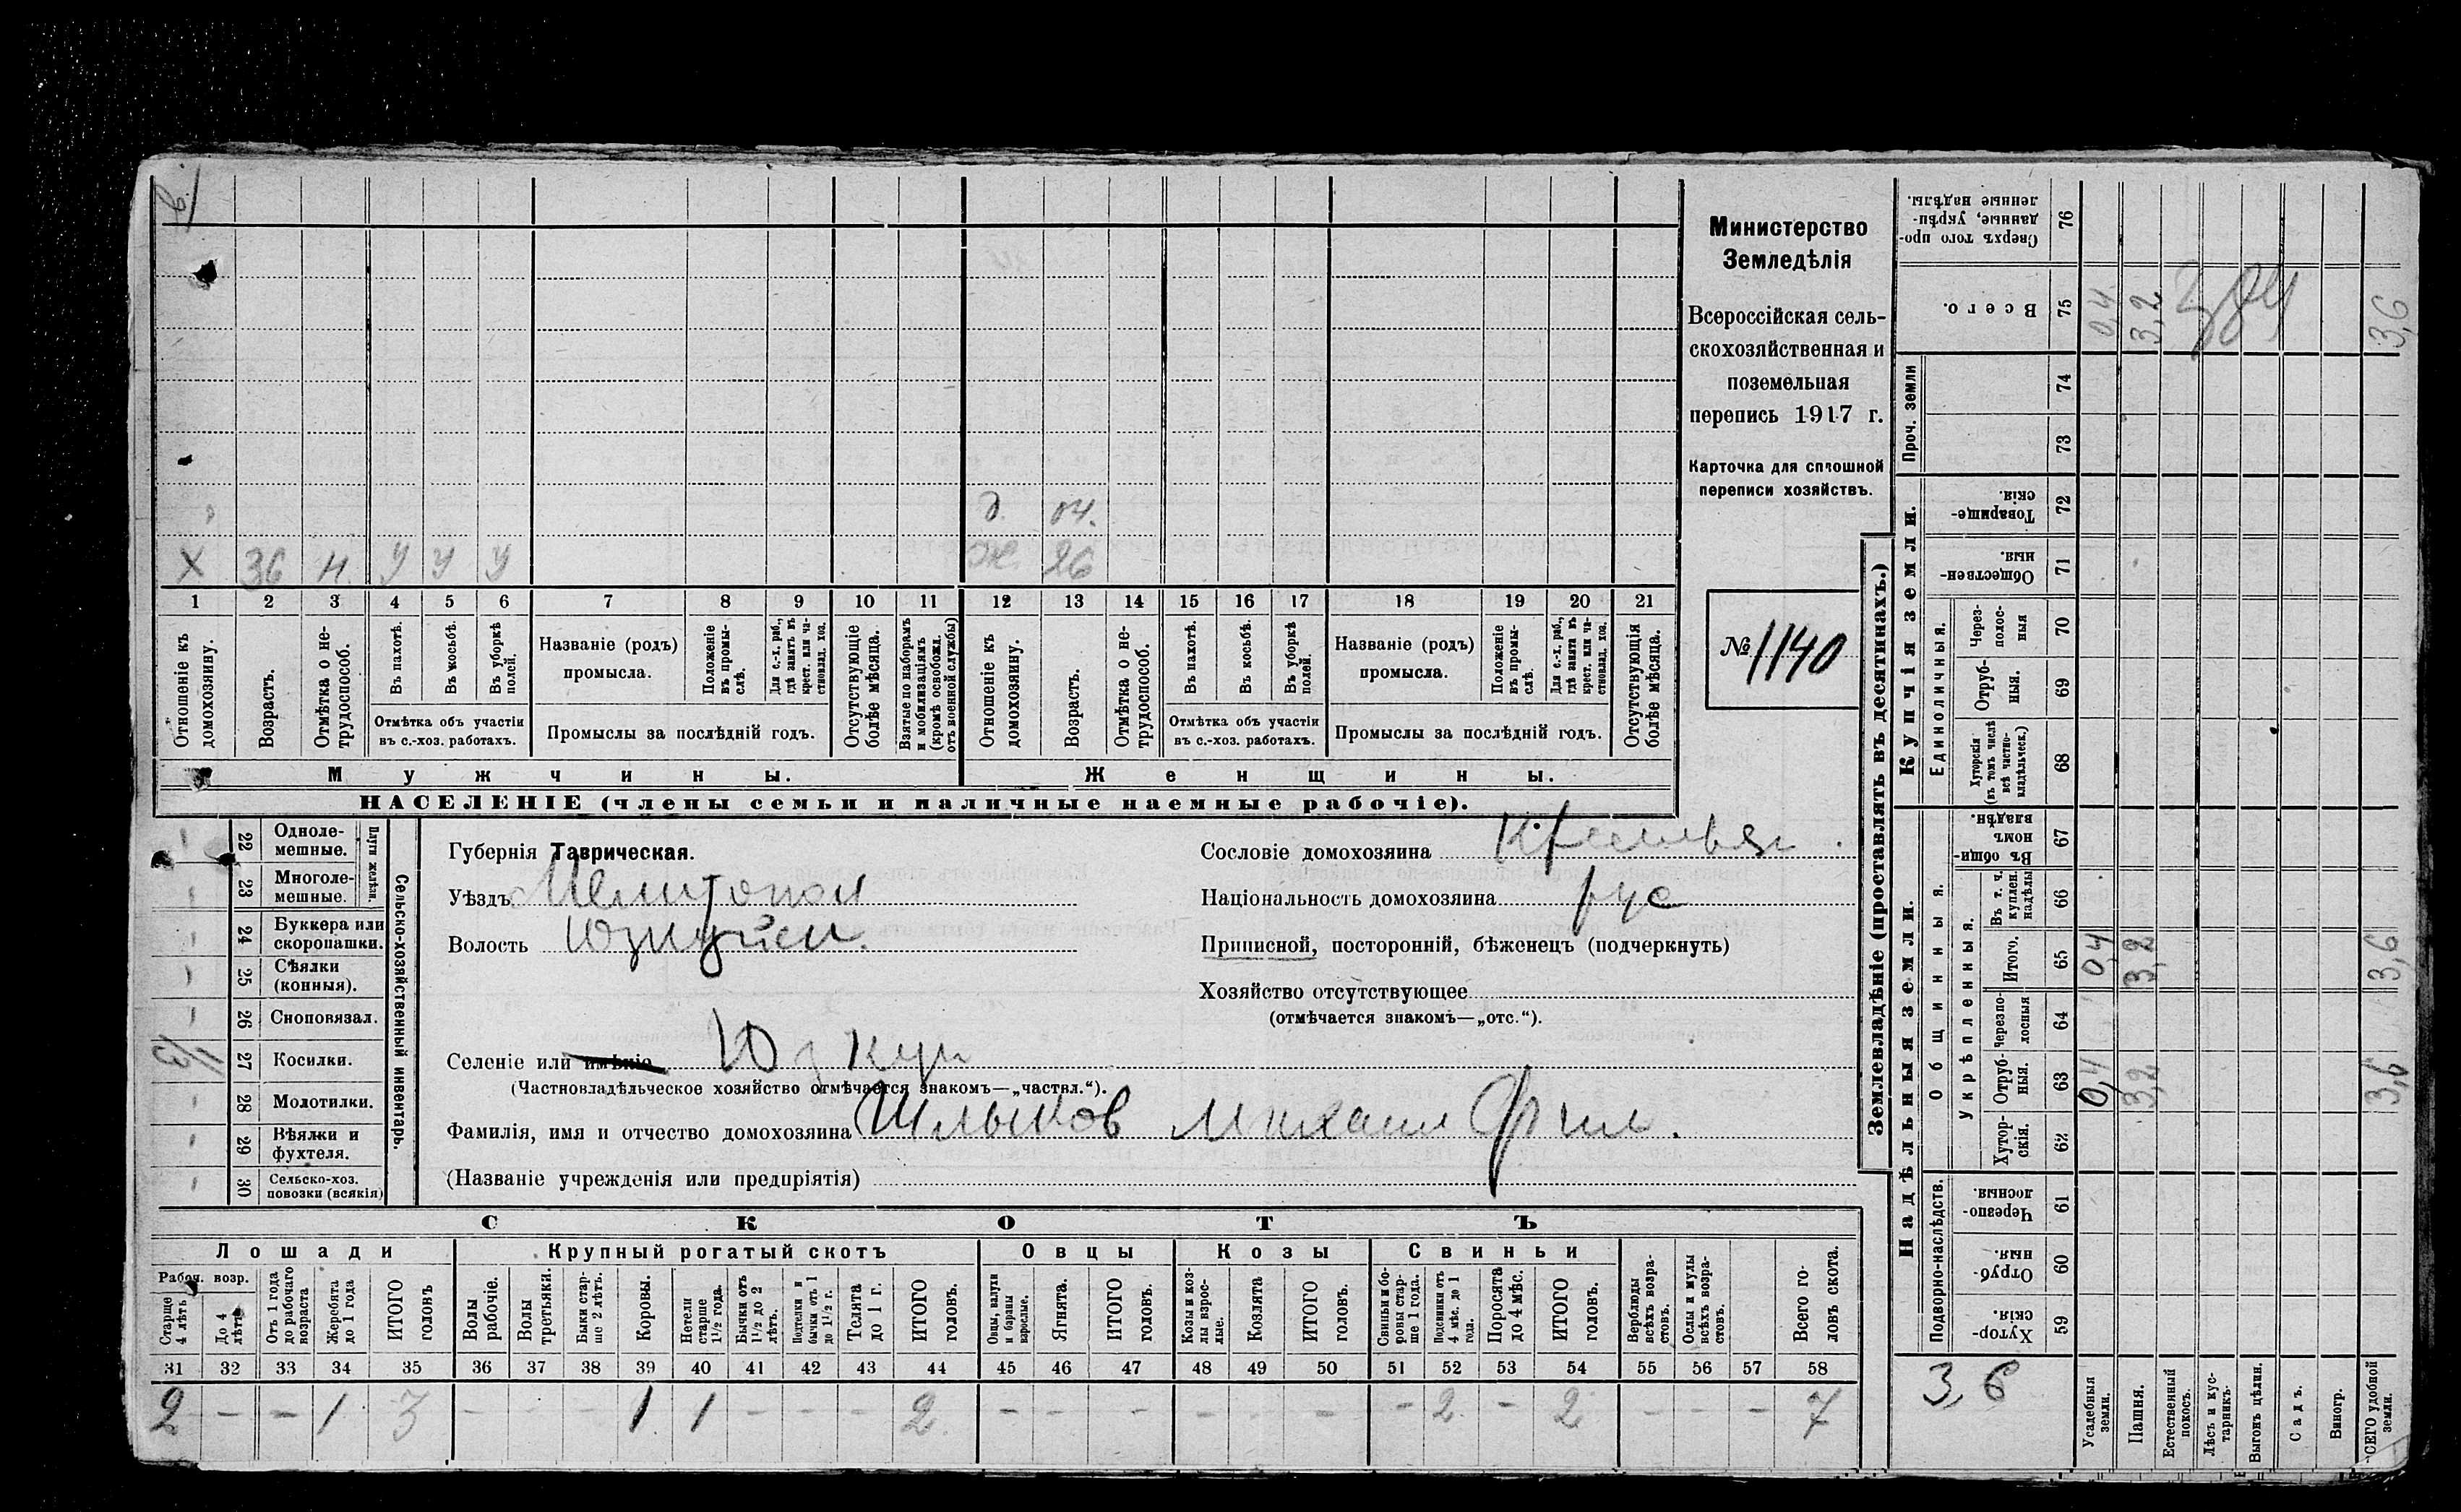 д. 04.
X 36 н. у у у ж. 26
1 2 3 4 5 6 7 8 9 10 11 12 13 14 15 16 17 18 19 20 21
Отношеніе къ домохозяину.
Возрастъ.
Отмѣтка о не-трудоспособ.
Въ пахотѣ.
Въ косьбѣ.
Въ уборкѣ полей.
Отмѣтка объ участіи
въ с.-хоз. работахъ.
Названіе (родъ)
промысла.
Положеніе въ промы-слѣ.
Для с.-х. раб., гдѣ занятъ въ крест. или ча-стновлад. хоз.
Промыслы за послѣдній годъ.
Отсутствующіе болѣе мѣсяца.
Взятые по наборамъ и мобилизаціямъ (кромѣ освобожд. отъ военной службы)
Отношеніе къ домохозяину.
Возрастъ.
Отмѣтка о не-трудоспособ.
Въ пахотѣ.
Въ косьбѣ.
Въ уборкѣ полей.
Отмѣтка объ участіи
въ с.-хоз. работахъ.
Названіе (родъ)
промысла.
Положеніе въ промы-слѣ.
Для с.-х. раб., гдѣ занятъ въ крест. или ча-стновлад. хоз.
Промыслы за послѣдній годъ.
Отсутствующія болѣе мѣсяца.
Мужчины.
Женщины.
НАСЕЛЕНІЕ (члены семьи и наличные наемные рабочіе).
Министерство
Земледѣлія
Всероссійская сель-
скохозяйственная и
поземельная
перепись 1917 г.
Карточка для сплошной
переписи хозяйствъ.
№ 1140
Сельско-хозяйственный инвентарь.
Плуги желѣзн.
22 Одноле-
мешные.
23 Многоле-
мешные.
24 Буккера или
скоропашки.
25 Сѣялки
(конныя).
26 Сноповязал.
27 Косилки.
28 Молотилки.
29 Вѣялки и
фухтеля.
30 Сельско-хоз.
повозки (всякія)
Губернія Таврическая.
Уѣздъ Мелитопол
Волость Юзкуйск.
Селеніе или имѣніе Юзкуи
(Частновладѣльческое хозяйство отмѣчается знакомъ—„частвл.“).
Фамилія, имя и отчество домохозяина Шлыков Михаил Фил.
(Названіе учрежденія или предпріятія)
Сословіе домохозяина Крестьян.
Національность домохозяина рус
Приписной, посторонній, бѣженецъ (подчеркнуть)
Хозяйство отсутствующее
(отмѣчается знакомъ—„отс.“).
СКОТЪ
Лошади
Крупный рогатый скотъ
Овцы
Козы
Свиньи
Рабоч. возр.
Старше 4 лѣтъ
До 4 лѣтъ
Отъ 1 года до рабочаго возраста
Жеребята до 1 года
ИТОГО головъ
Волы рабочіе.
Волы третьяки.
Быки стар-ше 2 лѣтъ.
Коровы.
Нетели старше 1½ года.
Бычки отъ 1½ до 2 лѣтъ.
Подтелки и бычки отъ 1 до 1½ г.
Телята до 1 г.
ИТОГО головъ.
Овцы, валухи и бараны взрослые.
Ягнята.
ИТОГО головъ.
Козы и коз-лы взрос-лые.
Козлята
ИТОГО головъ.
Свиньи и бо-ровы стар-ше 1 года.
Подсвинки отъ 4 мѣс. до 1 года.
Поросята до 4 мѣс.
ИТОГО головъ.
Верблюды всѣхъ возра-стовъ.
Ослы и мулы всѣхъ возра-стовъ.
Всего го-ловъ скота.
31 32 33 34 35 36 37 38 39 40 41 42 43 44 45 46 47 48 49 50 51 52 53 54 55 56 57 58
2 - - 1 3 - - - 1 1 - - - 2 - - - - - - - 2 - 2 - - - 7
Землевладѣніе (проставлять въ десятинахъ.)
Купчія земли.
Надѣльныя земли.
Сверхъ того про-данные, укрѣп-ленные надѣлы. 76
Всего. 75 0,4 3,2 3,6
Проч. земли
74
73
Товарище-скія. 72
Обществен-ныя. 71
Единоличныя.
Через-полос-ныя 70
Отруб-ныя. 69
Хуторскія (въ томъ числѣ всѣ частно-владѣльческ.) 68
Общинныя.
Въ общин-номъ владѣн. 67
Укрѣпленныя.
Въ т. ч. куплен. надѣлы 66
Итого. 65 0,4 3,2 3,6
Черезпо-лосныя 64
Отруб-ныя. 63 0,4 3,2 3,6
Хутор-скія. 62
Подворно-наслѣдств.
Черезпо-лосныя. 61
Отруб-ныя. 60
Хутор-скія. 59
3,6
Усадебныя земли.
Пашня.
Естественный покосъ.
Лѣсъ и кус-тарникъ.
Выгонъ цѣлин.
Садъ.
Виногр.
ВСЕГО удобной земли.